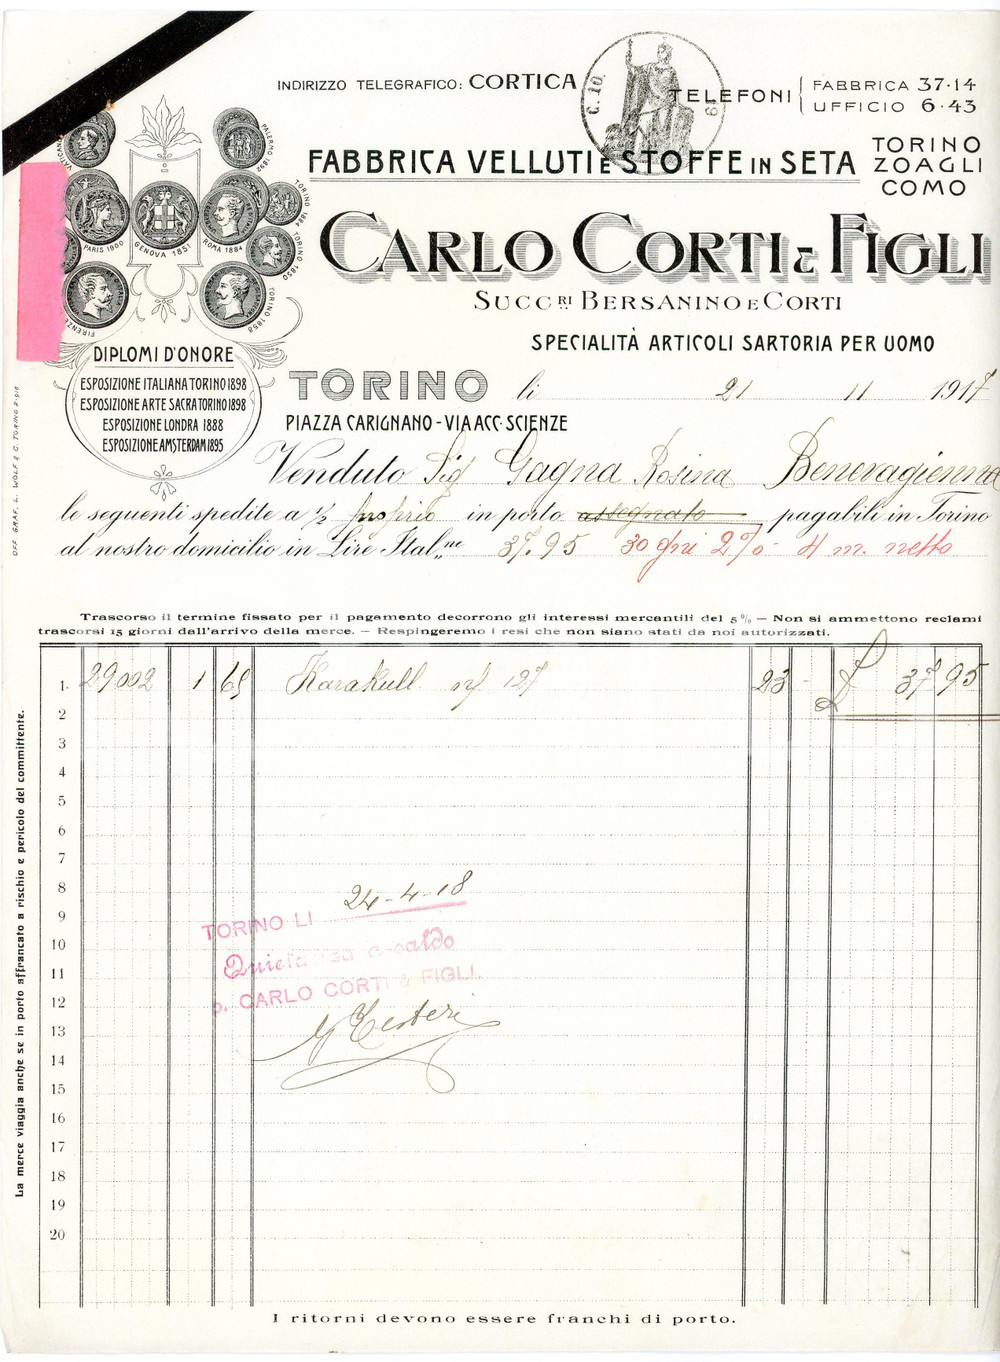 INDIRIZZO TELEGRAFICO: CORTICA
C. 10.
TELEFONI FABBRICA 37·14
UFFICIO 6·43
FABBRICA VELLUTI E STOFFE IN SETA
TORINO
ZOAGLI
COMO
CARLO CORTI & FIGLI
SUCC.RI BERSANINO E CORTI
SPECIALITÀ ARTICOLI SARTORIA PER UOMO
PALERMO 1892
TORINO 1884
PARIS 1900
GENOVA 1851
ROMA 1884
TORINO 1850
FIRENZE
TORINO 1858
DIPLOMI D'ONORE
ESPOSIZIONE ITALIANA TORINO 1898
ESPOSIZIONE ARTE SACRA TORINO 1898
ESPOSIZIONE LONDRA 1888
ESPOSIZIONE AMSTERDAM 1895
TORINO li 21 11 1917
PIAZZA CARIGNANO - VIA ACC. SCIENZE
Venduto Sig Gagna Rosina Benevagienna
le seguenti spedite a ½ proprio in porto assegnato pagabili in Torino
al nostro domicilio in Lire Ital.ne 37.95 30 gni 2% - 4 m. netto
Trascorso il termine fissato per il pagamento decorrono gli interessi mercantili del 5 % — Non si ammettono reclami
trascorsi 15 giorni dall'arrivo della merce. — Respingeremo i resi che non siano stati da noi autorizzati.
1. 29002 1 65 Karakull nf 127 23 - £ 37 95
2
3
4
5
6
7
8
9
10
11
12
13
14
15
16
17
18
19
20
24-4-18
TORINO LI
Quietanza a saldo
p. CARLO CORTI & FIGLI.
I ritorni devono essere franchi di porto.
OFF. GRAF. L. WOLF & C. TORINO
La merce viaggia anche se in porto affrancato a rischio e pericolo del committente.